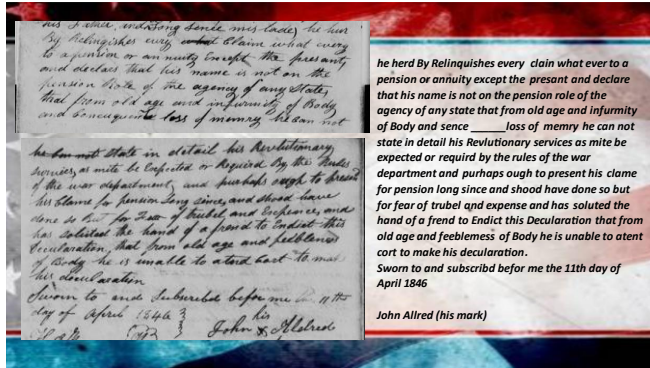 his Father, and Long sence mis lade, he hur
By Relingishes every what Claim what every
to a pension or annuity Except the presant,
and declars that his name is not on the
pension Role of the agency of any State,
that from old age and infurmity of Body
and Consequince loss of memry he can not
he can not State in detail his Revlutionary
survices as mite be Expected or Required By the Rules
of the war department, and purhaps ough to present
his Clame for pension Long since, and shood have
done so but for Fear of trubel, and Expences, and
has soluted the hand of a frend to Endict this
Decularation, that from old age and feebleness
of Body he is unable to atend Cort to mak
his decularation
Sworn to and Subscribd befor me the 11th
day of April 1846
his
John X Aldred
he herd By Relinquishes every clain what ever to a
pension or annuity except the presant and declare
that his name is not on the pension role of the
agency of any state that from old age and infurmity
of Body and sence ______loss of memry he can not
state in detail his Revlutionary services as mite be
expected or requird by the rules of the war
department and purhaps ought to present his clame
for pension long since and shood have done so but
for fear of trubel and expense and has soluted the
hand of a frend to Endict this Decularation that from
old age and feeblemess of Body he is unable to atent
cort to make his decularation.
Sworn to and subscribd befor me the 11th day of
April 1846
John Allred (his mark)